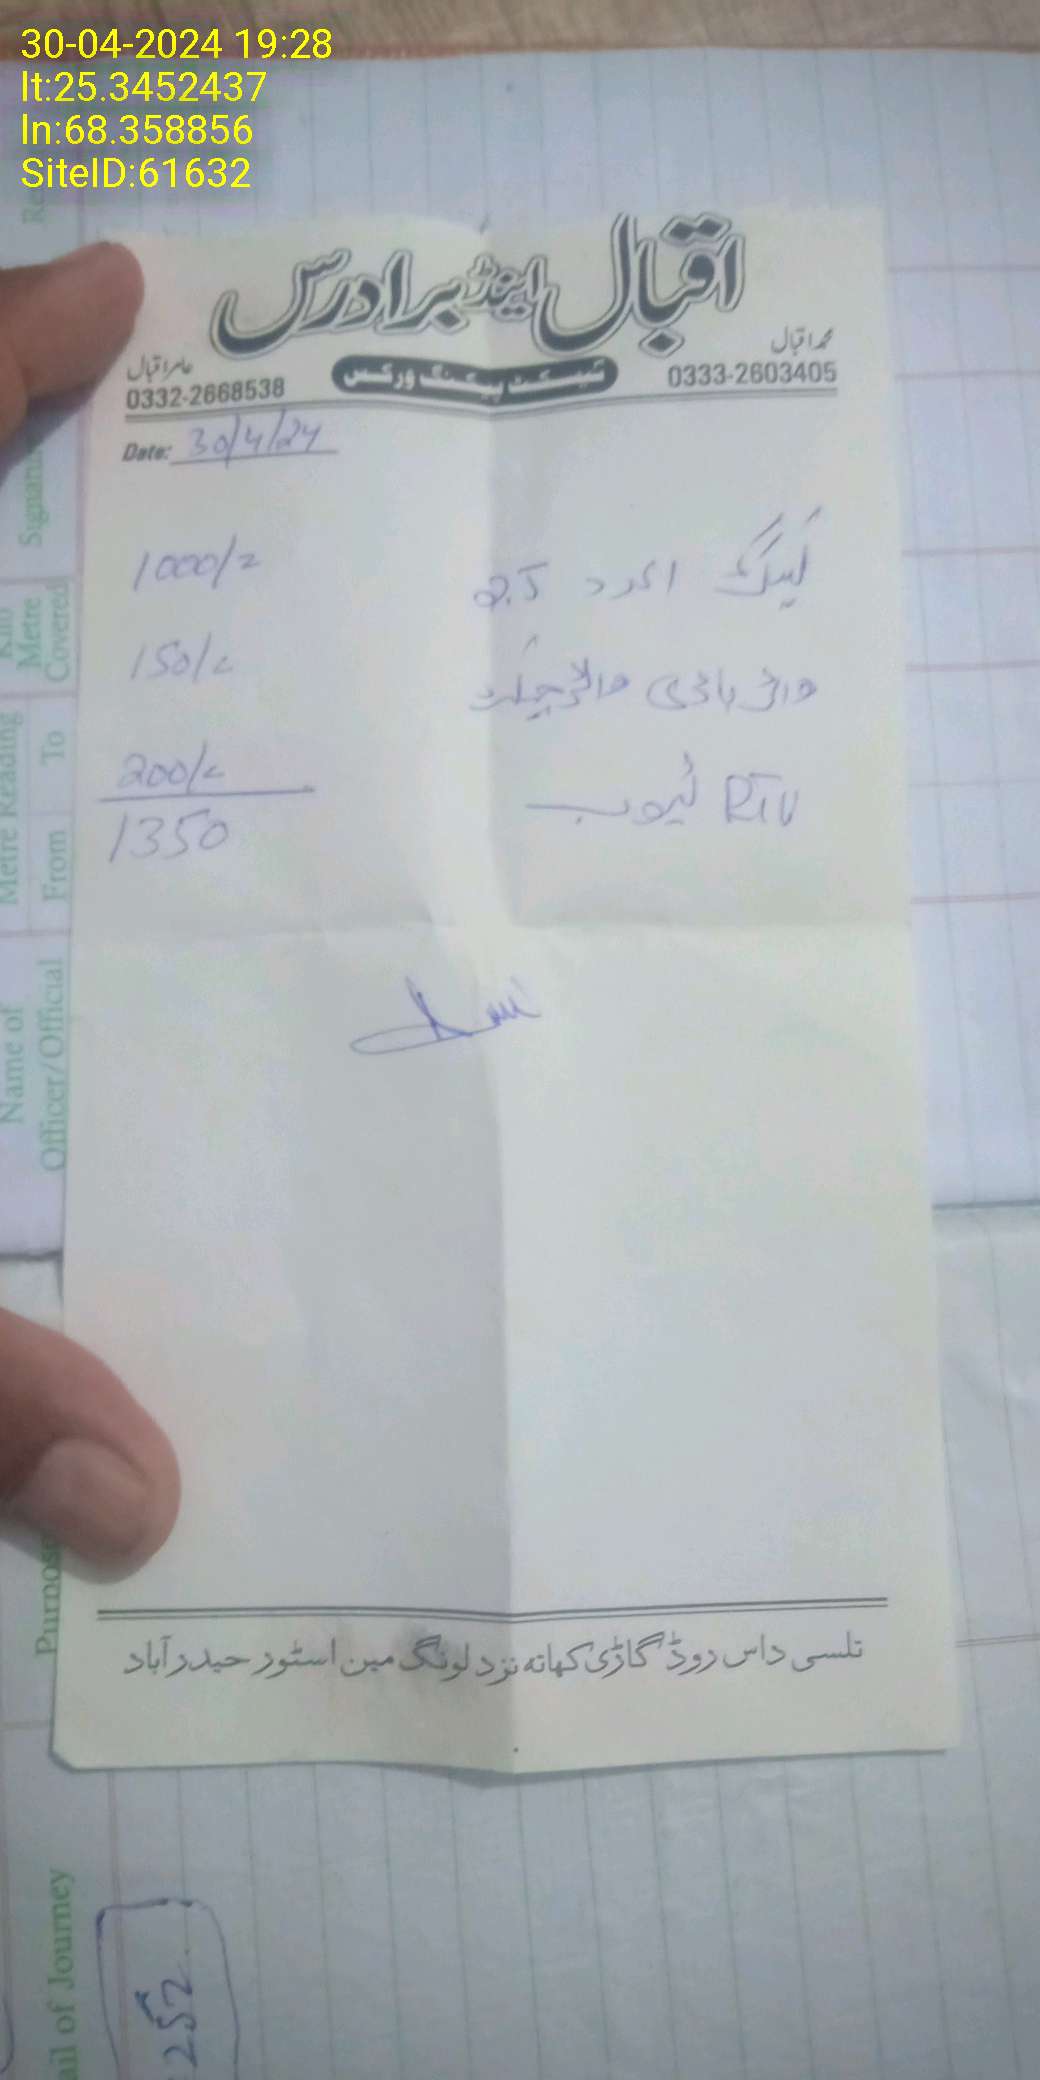 30-04-2024 19:28
lt:25.3452437
ln:68.358856
SiteID:61632
اقبال اینڈ برادرس
محمد اقبال
0333-2603405
عامر اقبال
0332-2668538
گیسکٹ پیکنگ ورکس
Date: 30/4/24
2.5 1000/=
وائر باڈی 150/=
RTV ٹیوب 200/=
1350
تلسی داس روڈ گاڑی کھاتہ نزد لونگ مین اسٹور حیدرآباد
Signatu
Kilo Metre Covered
Metre Reading
From To
Name of Officer/Official
Purpose
ail of Journey
252